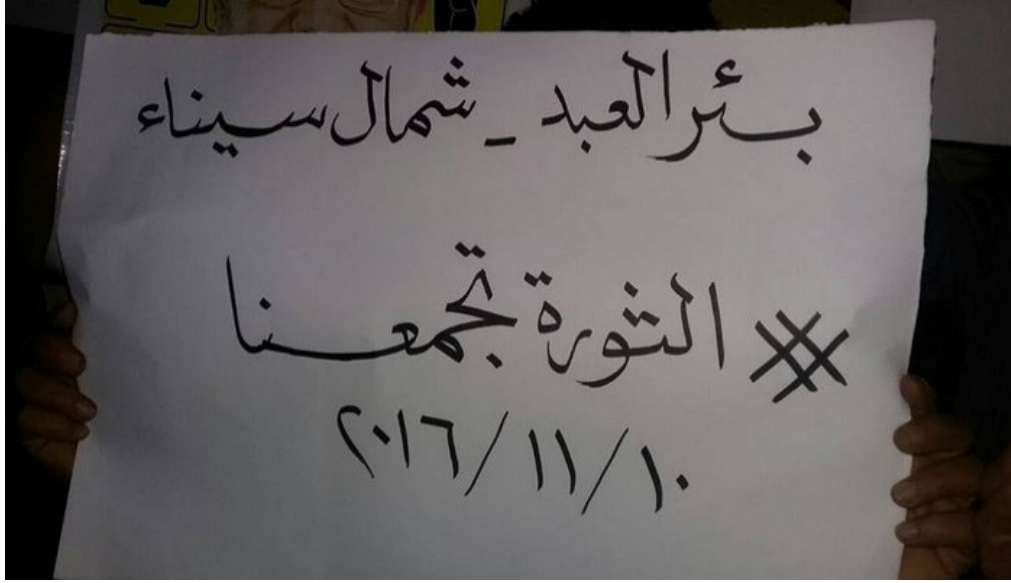 بئر العبد - شمال سيناء
# الثورة تجمعنا
١٠/١١/٢٠١٦